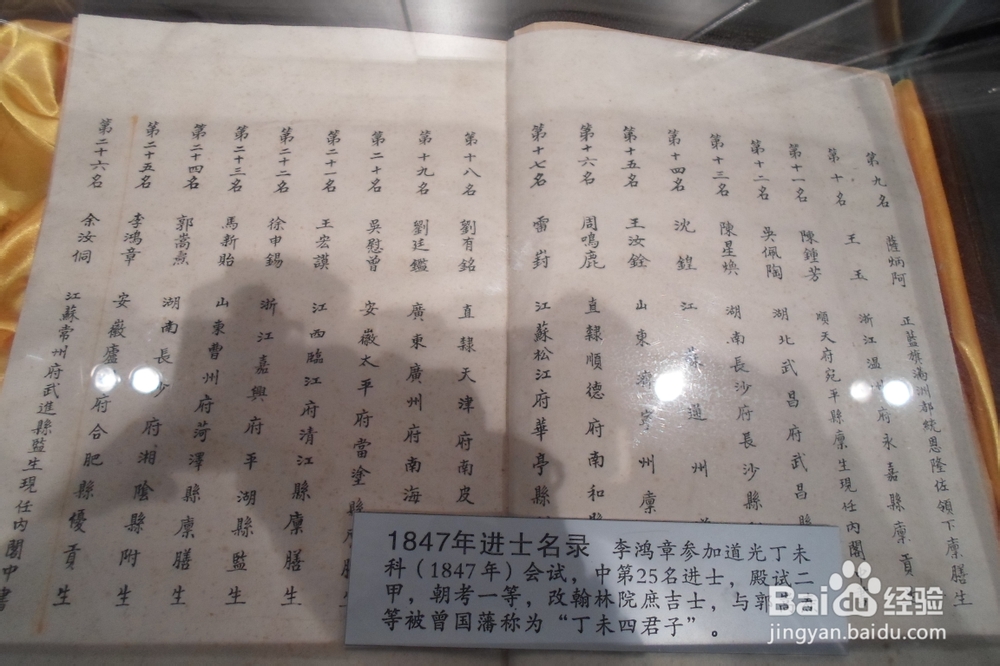 第九名 薩炳阿 正藍旗滿洲都統恩隆佐領下廩膳生
第十名 王玉 浙江溫 府永嘉縣廩 生
第十一名 陳鍾芳 順天府宛平縣廩生現任內閣
第十二名 吳佩陶 湖北武昌府武昌縣
第十三名 陳星煥 湖南長沙府長沙縣
第十四名 沈鍠 江 蘇 通 州
第十五名 王汝銓 山東 寧州廩
第十六名 周鳴鹿 直隸順德府南和
第十七名 雷崶 江蘇松江府華亭縣
第十八名 劉有銘 直隸天津府南皮
第十九名 劉廷鑑 廣東廣州府南海
第二十名 吳慰曾 安徽太平府當塗縣
第二十一名 王宏謨 江西臨江府清江縣廩膳生
第二十二名 徐申錫 浙江嘉興府平湖縣監生
第二十三名 馬新貽 山東曹州府菏澤縣廩膳生
第二十四名 郭嵩燾 湖南長沙府湘陰縣附生
第二十五名 李鴻章 安徽廬 府合肥縣優貢生
第二十六名 余汝侗 江蘇常州府武進縣監生現任內閣中書
1847年进士名录 李鸿章参加道光丁未
科（1847年）会试，中第25名进士，殿试二
甲，朝考一等，改翰林院庶吉士，与郭
等被曾国藩称为“丁未四君子”。
Baidu 经验
jingyan.baidu.com